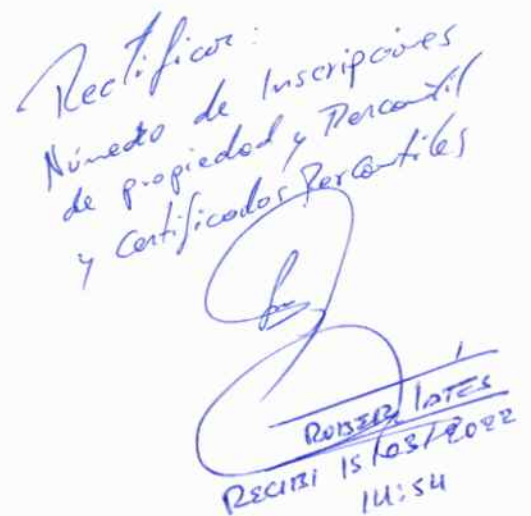 Rectificar:
Número de Inscripciones
de propiedad y Mercantil
y Certificados Mercantiles
RECIBI 15/03/2022
14:54